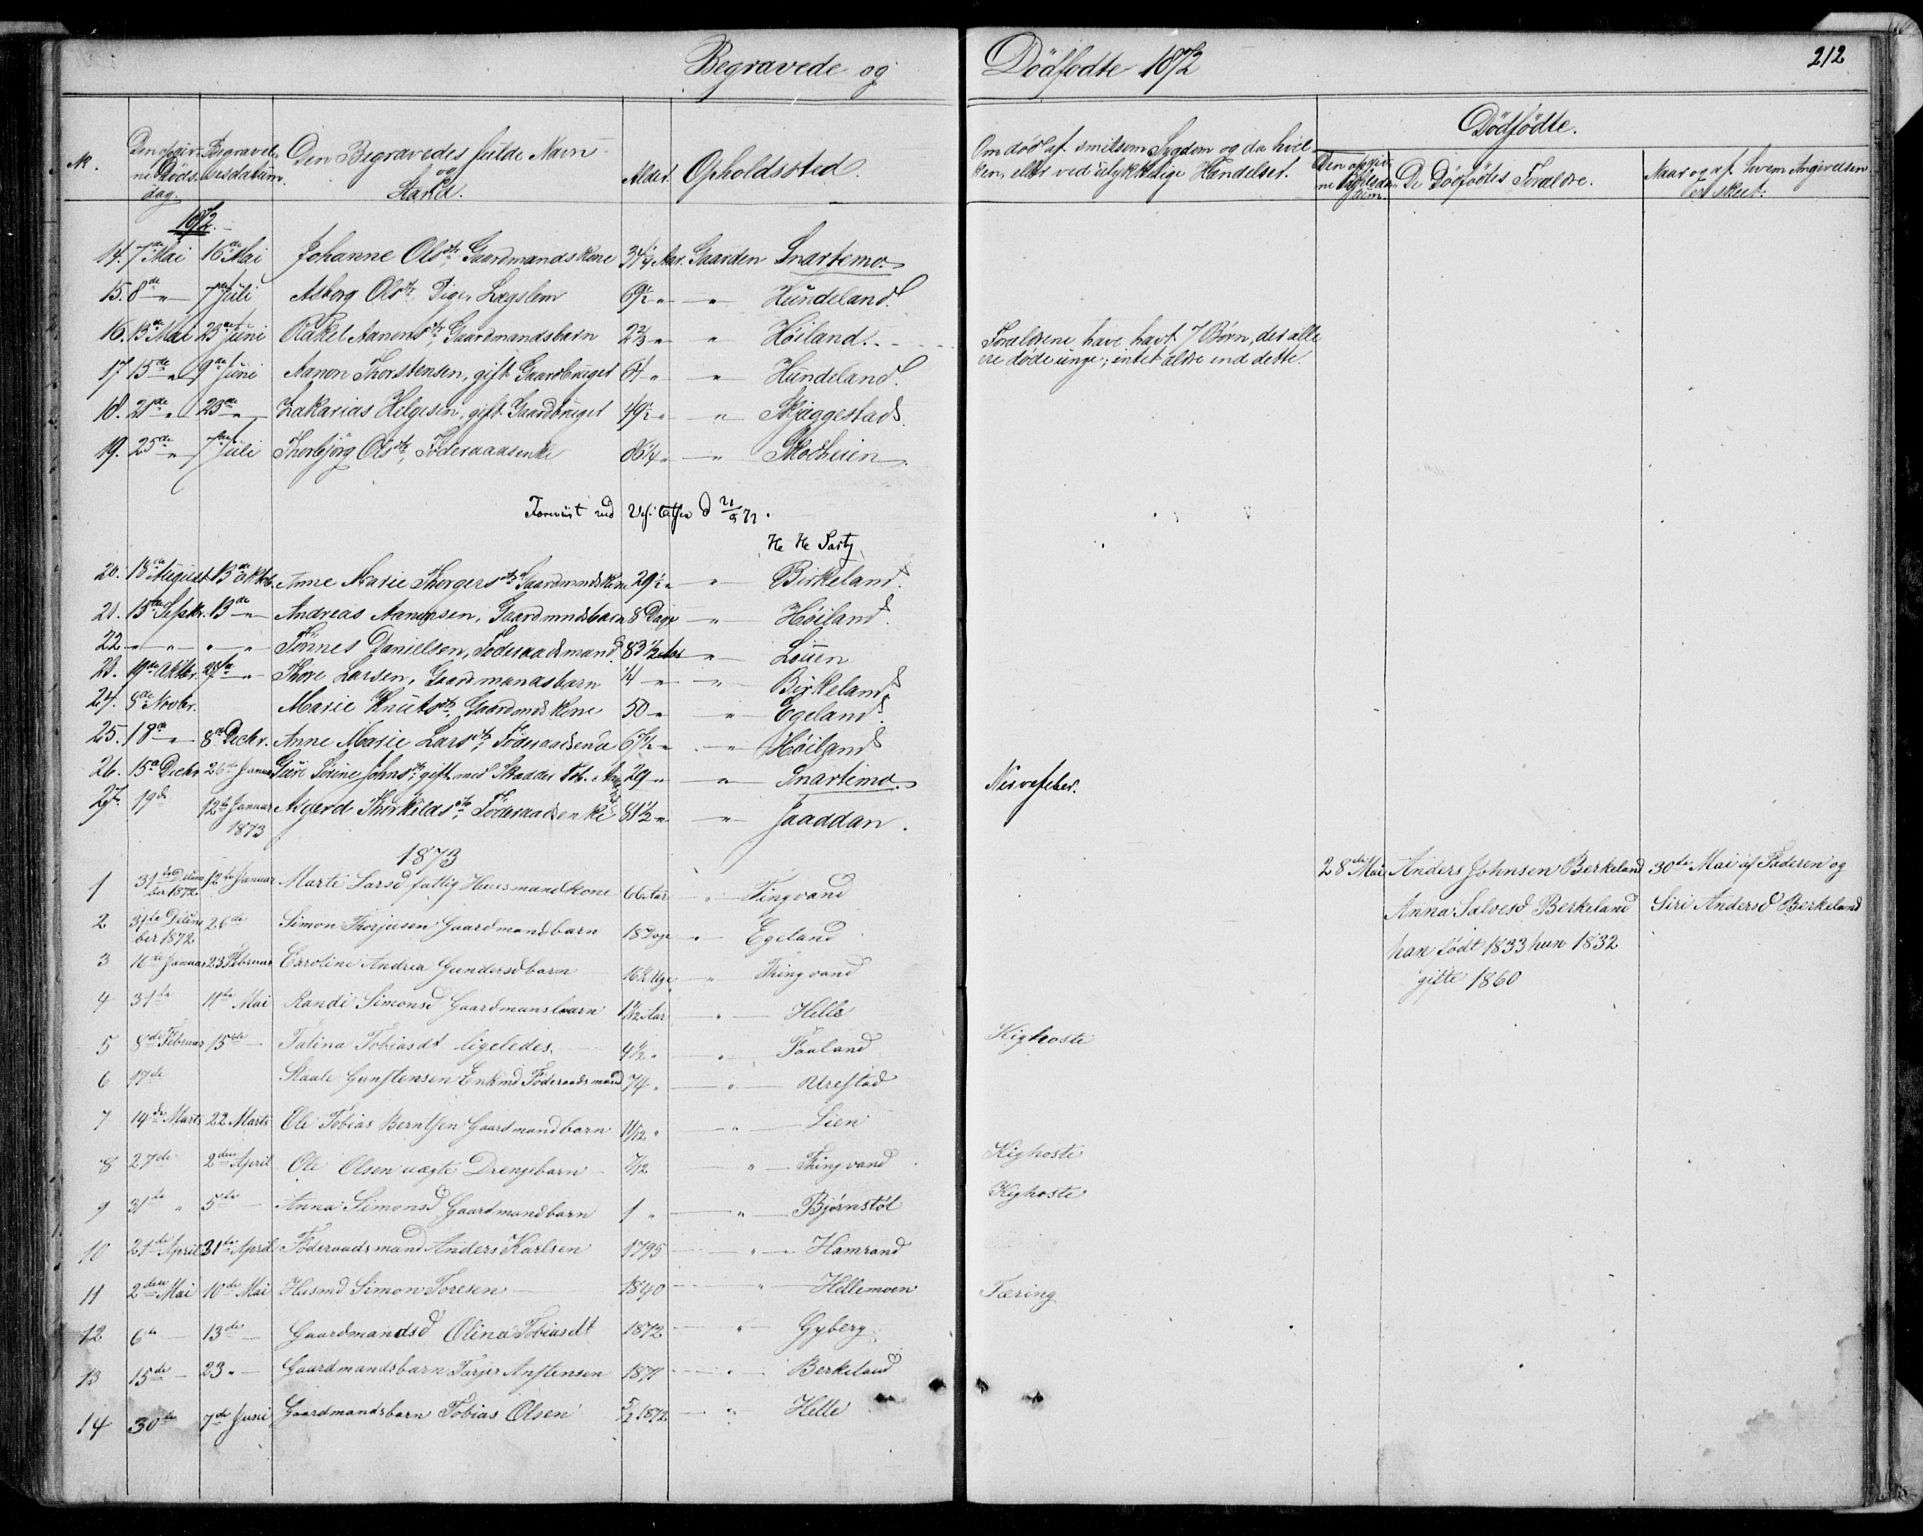 Begravede og Dödfödte 1872 212
No. Den Begravedes fulde Navn og Stand. Alder. Opholdssted.
Om död af smitsom Sygdom og da hvilken, eller ved ulykkelige Hændelser.
Dödfödte.
De Dödfödtes Forældre.
Naar og af hvem Angivelsen er skeet.
1872.
14. 7de Mai 16de Mai Johanne Olsdtr, Gaardmandskone 34 1/4 Aar. Gaarden Snartemo.
15. 8de " 7de Juli Asborg Olsdtr, Pige, Lægslem 69 1/2 " " Hundeland.
16. 13de Mai 23de Juni Rakel Aanensdtr, Gaardmandsbarn 2 2/3 " " Höiland.
Forældrene have havt 7 Börn, der alle
ere döde unge; intet ældre end dette.
17. 15de " 9de Juni Aanon Thorstensen, gift Gaardbruger 61 " " Hundeland.
18. 21de " 23de " Zakarias Helgesen, gift Gaardbruger 49 1/2 " " Skjæggestad.
19. 25de " 7de Juli Thorbjörg Olsdtr, Föderaadsenke 86 1/4 " " Skodheien.
Foreviist ved Visitatsen d 21/9 72.
20. 18de August 13de Oktob. Anne Marie Thorgersdtr Gaardmndskone 29 1/2 " " Birkeland.
21. 15de Septbr. 13de " Andreas Aanensen, Gaardmndsbarn 8 Dage " Höiland.
22 " " " " Tönnes Danielsen, Föderaadsmand 83 1/2 Aar " Löuen
23. 19de Oktbr. 27de " Thore Larsen, Gaardmandsbarn 14 " " Birkeland
24. 8de Novbr. Marie Knutsdtr, Gaardmdskone 50 " " Egeland.
25. 18de " 8de Decbr. Anne Marie Larsdtr, Föderaadsenke 67 1/2 " " Höiland
26. 15de Decbr 26de Januar Guri Serine Johnsdtr, gift med Skrædder Tob. 29 " " Snartemo. Nervefeber.
27. 19de 12te Januar 1873 Asgerd Thorkildsdtr, Föderaadsenke 81 1/2 " " Jaaddan.
1873
1 31te December 1872 12te Januar Marti Larsd fattig Huusmandkone 66 Aar " Tingvand
28de Mai Anders Johnsen Berkeland 30te Mai af Faderen og
Anna Salvesd Berkeland Siri Andersd Berkeland
han född 1833 hun 1832
gifte 1860
2 31te December 1872 26de Simon Thorjusen Gaardmandbarn 18 Dage " Egeland
3 10de Januar 23 Februar Caroline Andrea Gundersdbarn 16 1/2 Uge " Thingvand
4 31te 11te Mai Randi Simonsd Gaardmansbarn 1 1/12 Aar " Helle
5 8de Februar 15de Talina Tobiasdt ligeledes 4 1/2 " " Faaland Kighoste
6 17de Staale Gunstensen Enkmd Föderaadsmand 74 " " Urestad
7 14de Marts 22 Marts Ole Tobias Berntsen Gaardmandbarn 11/12 " " Lien
8 27de 2den April Ole Olsen uægte Drengebarn 7/12 " Thingvand Kighoste
9 31te " 5te Anna Simonsd Gaardmandbarn 1 " " Bjørnstøl Kighoste
10 21de April 31te April Föderaadsmand Anders Karlsen 1795 " Hamrand
11 2den Mai 10de Mai Husmd Simon Toresen 1840 " Hellemoen Tæring
12 6te 13de Gaardmandsd Olina Tobiasdt 1872 " Gyberg
13 15de 23 " Gaardmandsbarn Tarjer Anstensen 1871 " Berkeland
14 30te 7de Juni Gaardmandsbarn Tobias Olsen 5/2 1872 " Helle